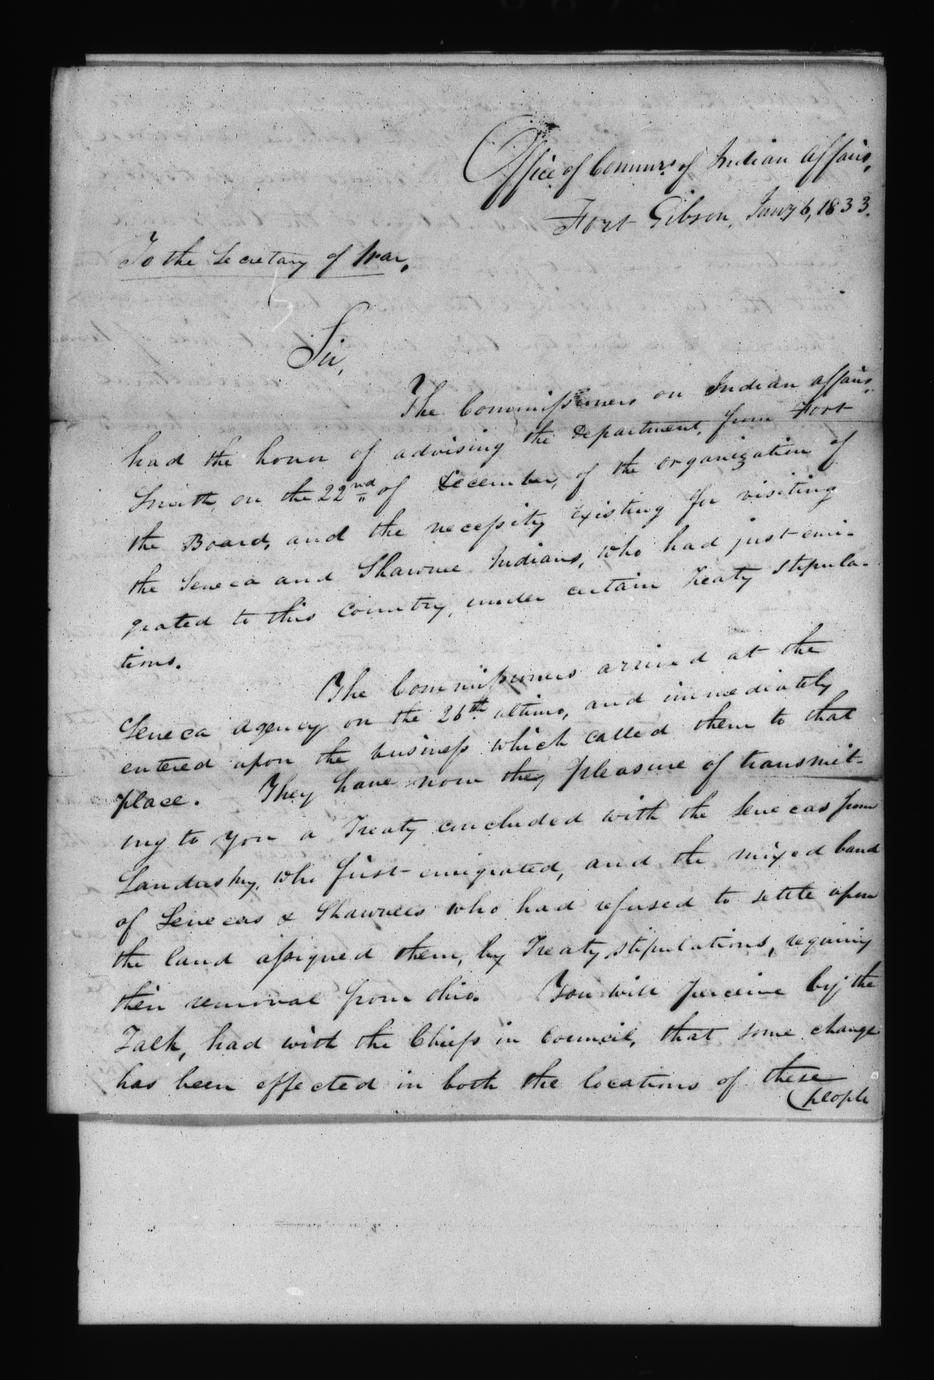 Office of Commrs. of Indian Affairs,
Fort Gibson, Jany 6, 1833.
To the Secretary of War,
Sir,
The Commissioners on Indian affairs,
had the honor of advising the Department, from Fort
Smith, on the 22nd of December, of the organization of
the Board, and the necessity existing for visiting
the Seneca and Shawnee Indians, who had just emi-
grated to this country, under certain Treaty stipula-
tions.
The Commissioners arrived at the
Seneca agency on the 26th ultimo, and immediately
entered upon the business which called them to that
place. They have now the pleasure of transmit-
ing to you a Treaty concluded with the Senecas from
Sandusky, who first emigrated, and the mixed band
of Senecas & Shawnees who had refused to settle upon
the land assigned them, by Treaty stipulations, requiring
their removal from Ohio. You will perceive by the
Talk, had with the Chiefs in Council, that some change
has been effected in both the locations of these
people